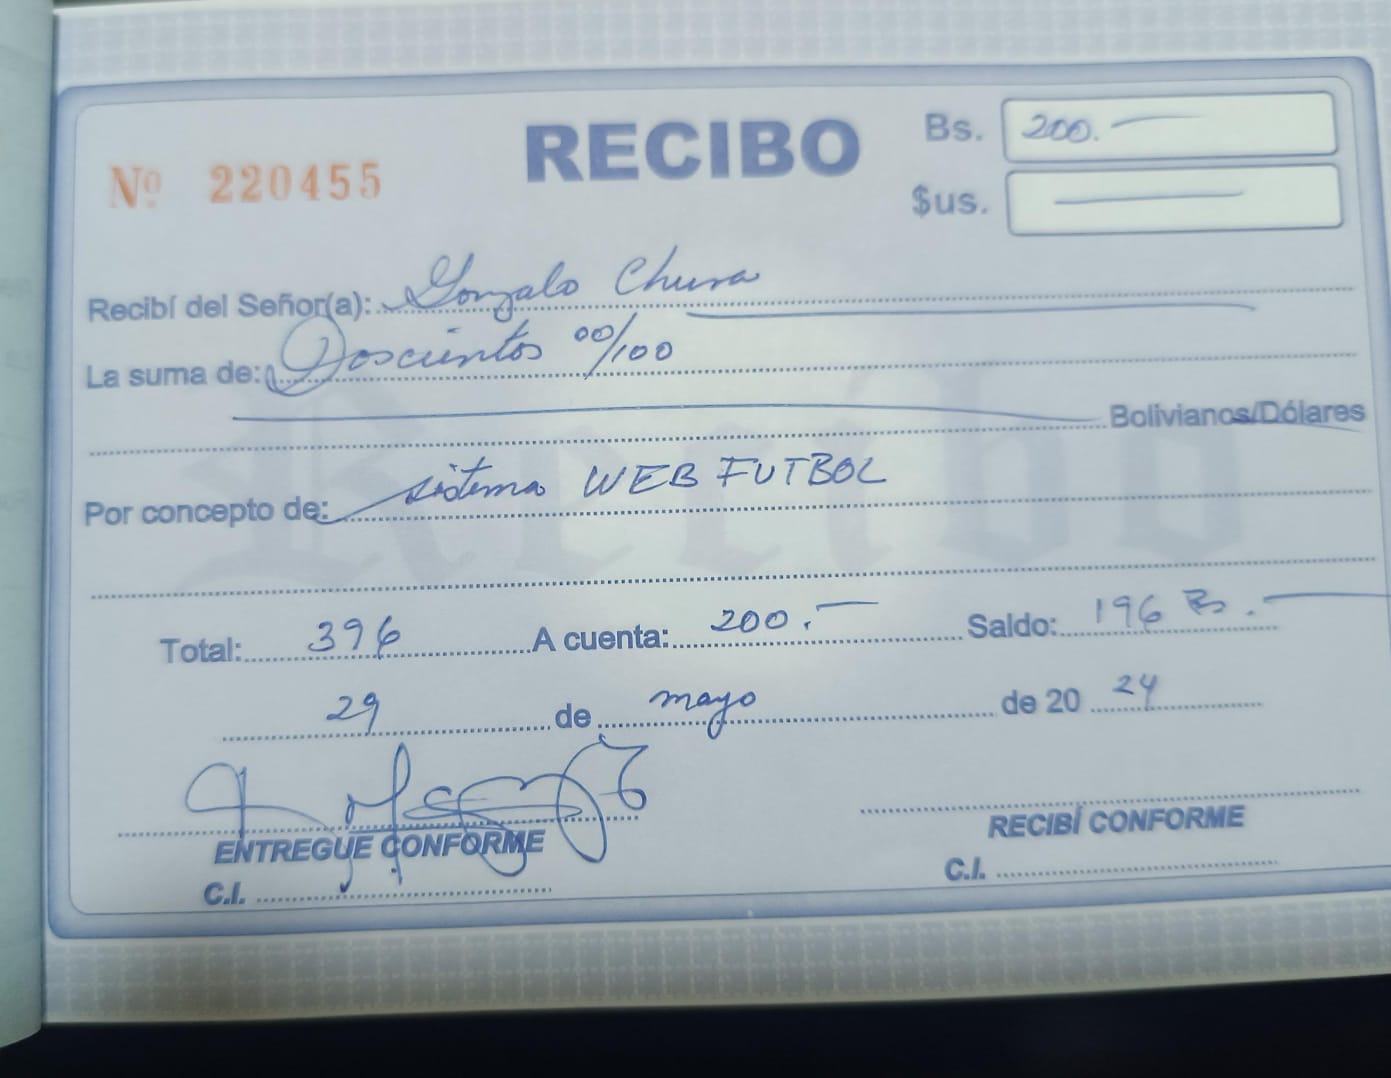 RECIBO
Bs. 200.-
Nº 220455
$us. -
Recibí del Señor(a): Gonzalo Chura
La suma de: Doscientos 00/100
Bolivianos/Dólares
Por concepto de: sistema WEB FUTBOL
Total: 396 A cuenta: 200.- Saldo: 196 Bs.-
29 de mayo de 20 24
ENTREGUE CONFORME
RECIBÍ CONFORME
C.I.
C.I.
Recibo